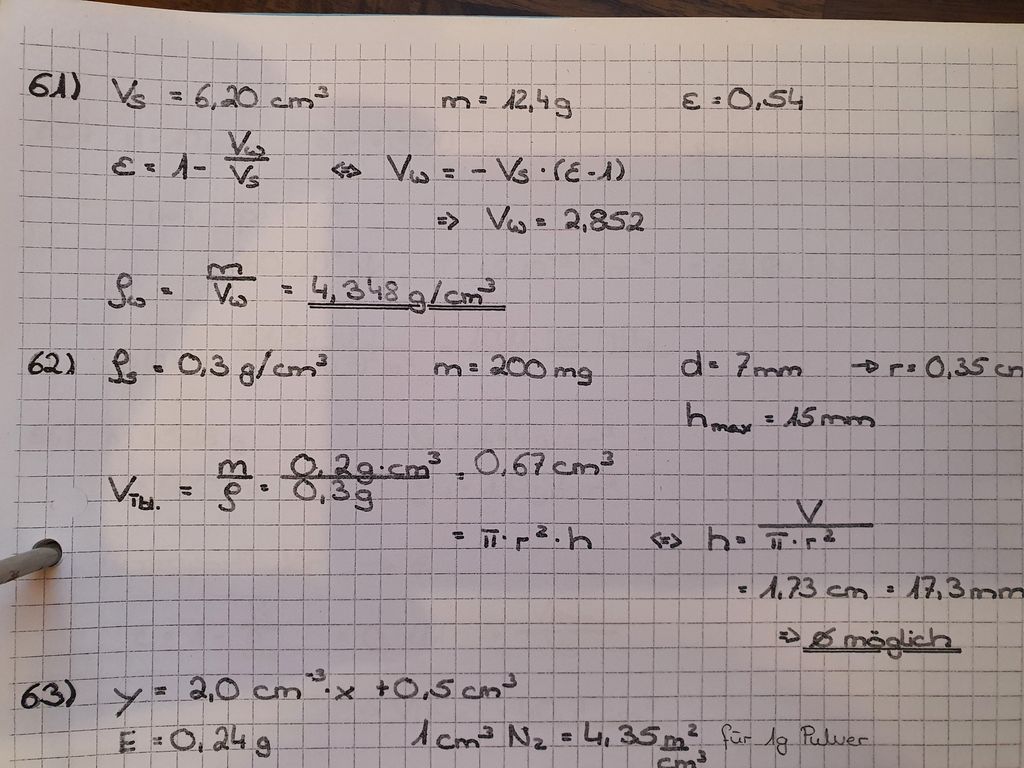 61) Vs = 6,20 cm³ m = 12,4g ε = 0,54
ε = 1 - Vω/Vs ⇔ Vω = - Vs · (ε - 1)
⇒ Vω = 2,852
ρω = m/Vω = 4,348 g/cm³
62) ρs = 0,3 g/cm³ m = 200 mg d = 7 mm → r = 0,35 cm
hmax = 15 mm
VTbl. = m/ρ = 0,2g·cm³/0,3g = 0,67 cm³
= π · r² · h ⇔ h = V/π · r²
= 1,73 cm = 17,3 mm
⇒ ∅ möglich
63) y = 2,0 cm⁻³ · x + 0,5 cm³
E = 0,24 g 1 cm³ N₂ = 4,35 m²/cm³ für 1g Pulver